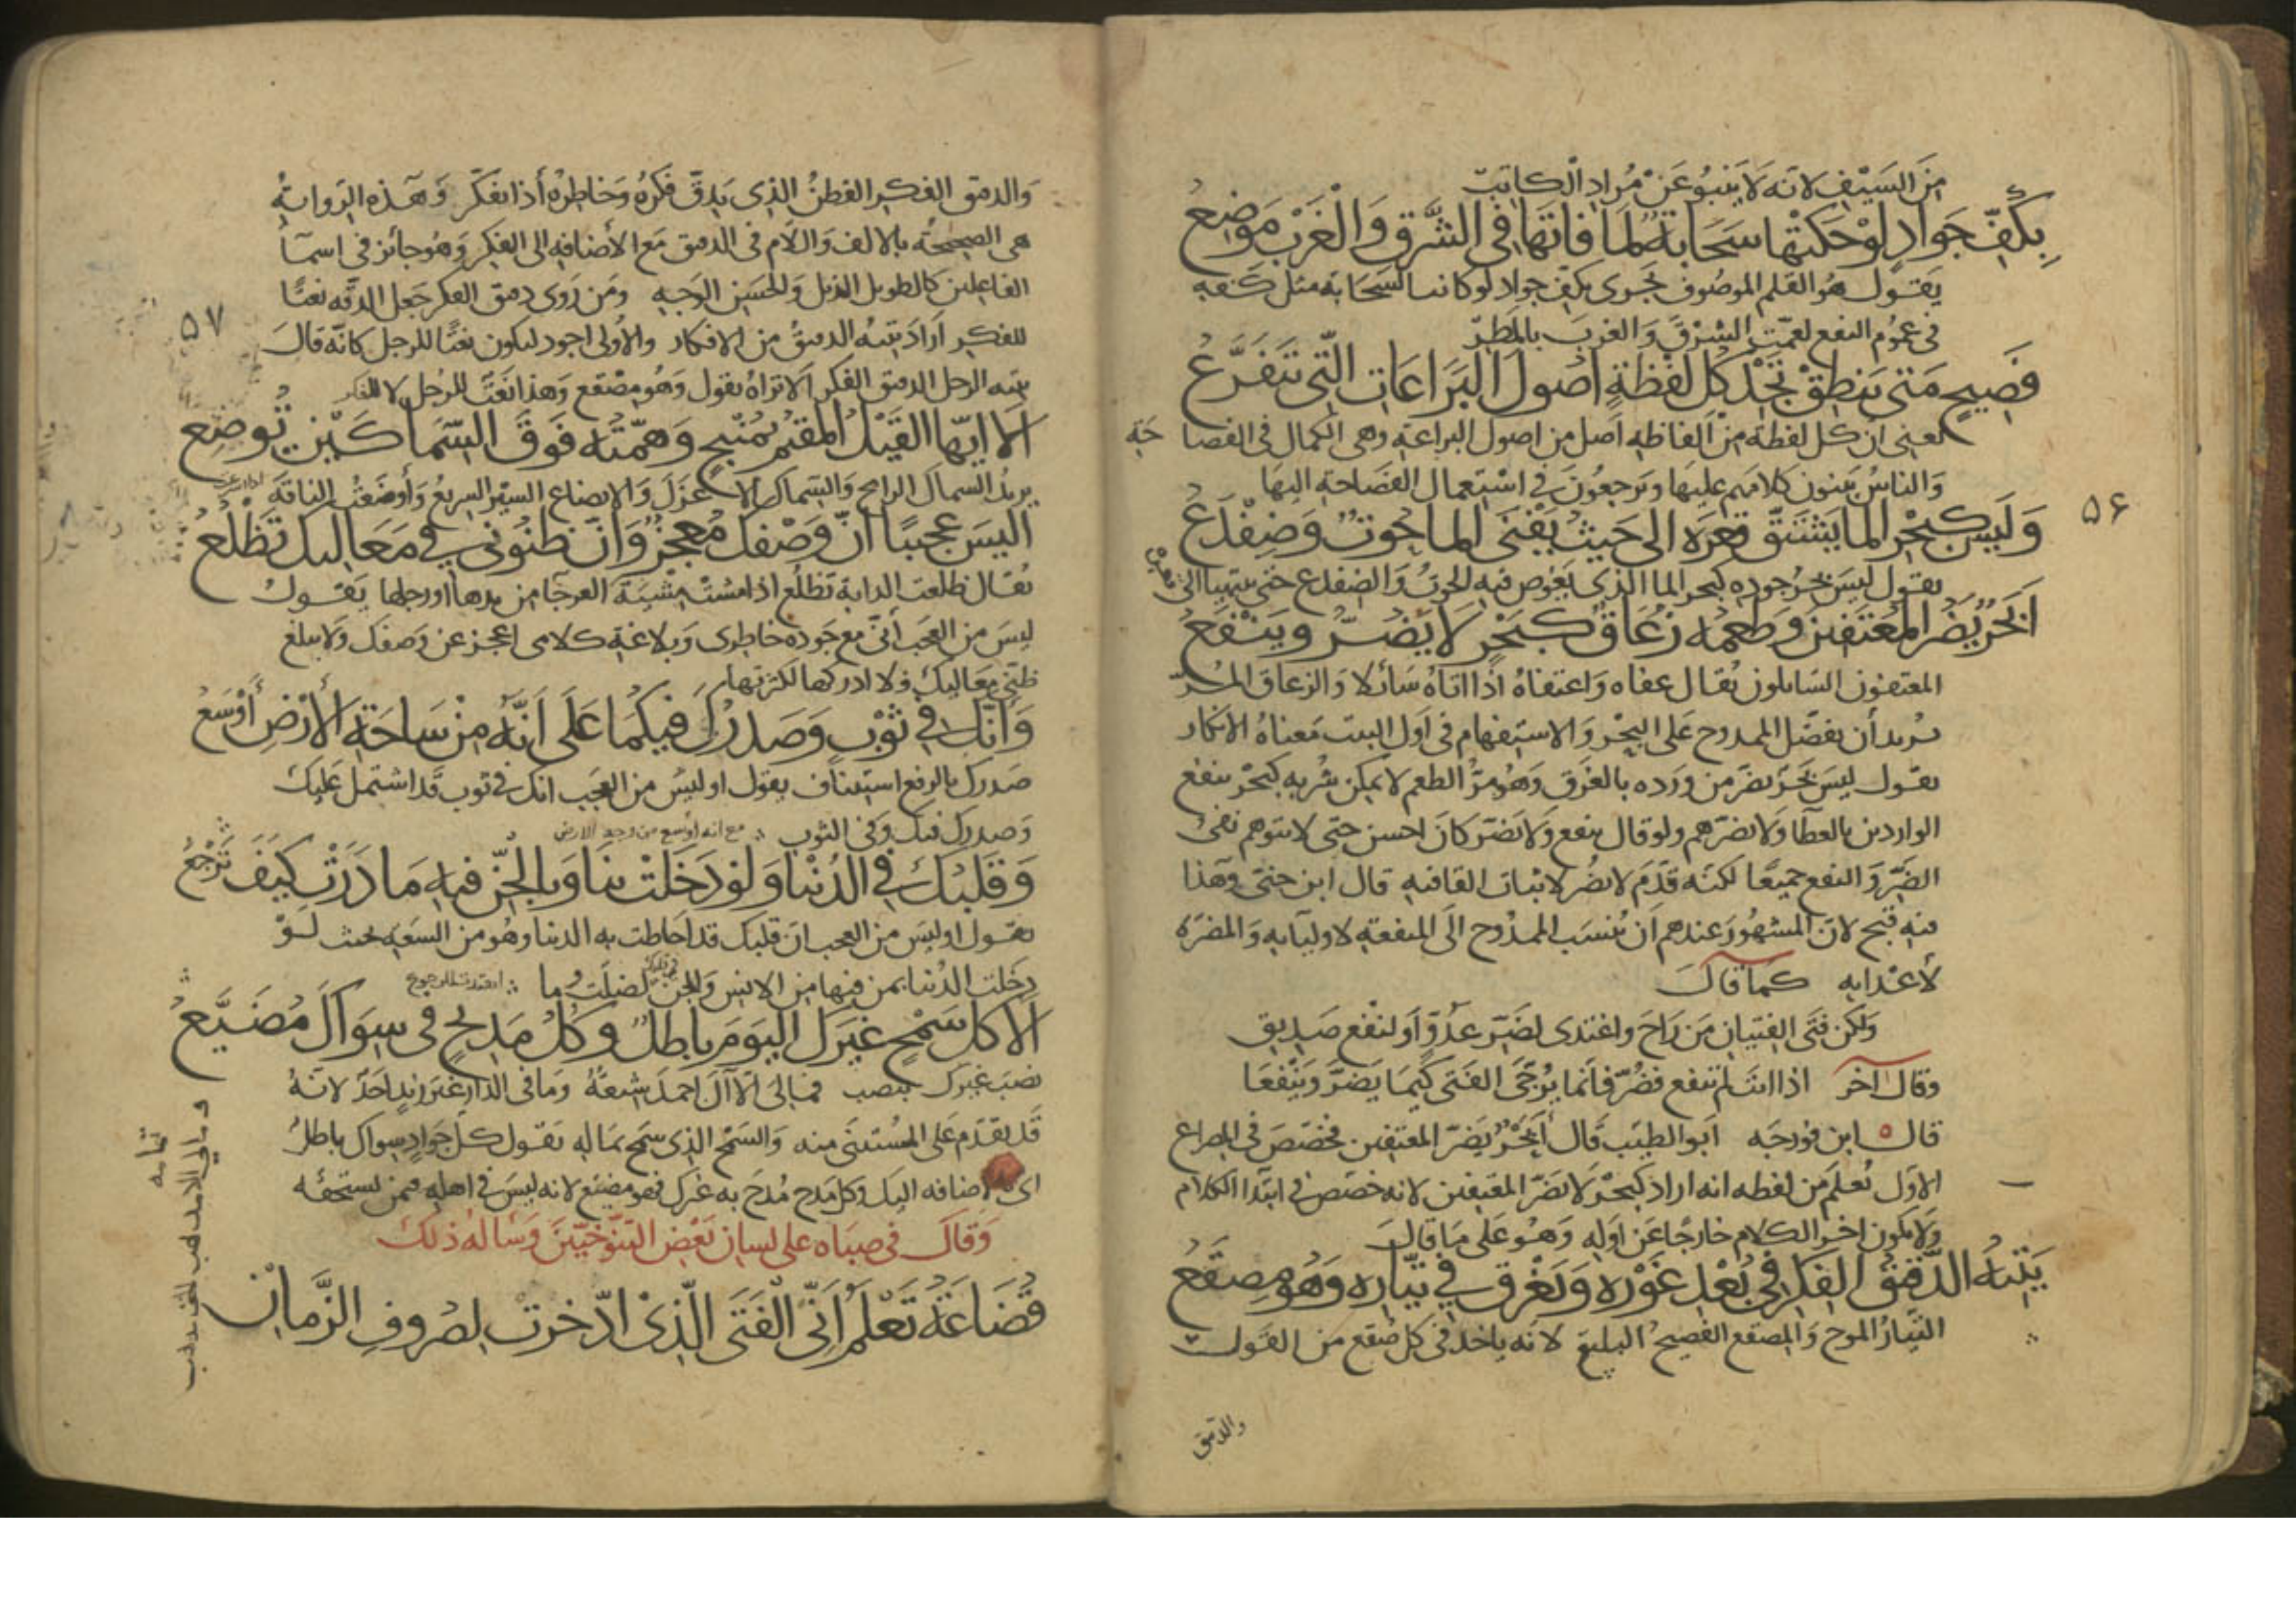 من السيف لانه لا ينبو عن مراد الكاتب
بِكَفِّ جَوَادٍ لَوْ حَكَتْهَا سَحَابَةٌ لَمَا فَاتَهَا فِي الشَّرْقِ وَالْغَرْبِ مَوْضِعُ
يقول هو القلم الموصوف يجرى بكف جواد لو كانت السحابة مثل كفه
فى عموم النفع لعمت الشرق والغرب بالمطر
فَصِيحٍ مَتَى يَنطِقْ تَجِدْ كُلَّ لَفْظَةٍ أُصُولَ الْبَرَاعَاتِ الَّتِي تَتَفَرَّعُ
يعنى ان كل لفظة من الفاظه اصل من اصول البراعة وهى الكمال فى الفصا حة
والناس يبنون كلامهم عليها ويرجعون فى استعمال الفصاحة اليها
٥۶
وَلَيسَ كبحْرِ الما يَشتَقّ قعرَه الى حَيثُ يَفْنَى الما حُوتٌ وَضِفْدَعُ
يقول ليس بحر جوده كبحر الما الذى يغوص فيه الحوت والضفدع حتى ينتهيا الى
أبَحْرٌ يَضُرّ المُعْتَفينَ وَطَعمُه زُعَاقٌ كبَحْرٍ لَا يَضُرّ ويَنْفَعُ
المعتفون السايلون يقال عفاه واعتفاه اذا اتاه سائلا والزعاق المر
يريد أن يفضل الممدوح على البحر والاستفهام فى اول البيت معناه الانكار
يقول ليس بحر يضر من ورده بالغرق وهو مر الطعم لا يمكن شربه كبحر ينفع
الواردين بالعطا ولا يضرهم ولو قال ينفع ولا يضر كان احسن حتى لا يتوهم نفى
الضر والنفع جميعا لكنه قدم لا يضر لاثبات القافيه قال ابن جنى وهذا
فيه قبح لان المشهور عندهم ان ينسب الممدوح الى المنفعه لاوليآيه والمضره
لأعدايه كما قال
ولكن فتى الفتيان من راح واغتدى لضر عدوّ أو لنفع صديق
وقال آخر اذا انت لم تنفع فضر فانما يرجى الفتى كيما يضر وينفعا
قال ابن فورجه ابو الطيب قال أبحر يضر المعتفين فخصص فى المصراع
الاول نعلم من لفظه انه اراد كبحر لا يضر المعتفين لانه خصص فى ابتدا الكلام
ولا يكون اخر الكلام خارجا عن اوله وهو على ما قال
يَتِيهُ الدَّقيقُ الفِكرِ فى بُعْدِ غَوْرِه وَيَغْرق في تيّاره وهْوَ مِصقَعُ
التيار الموج والمصقع الفصيح البليغ لانه ياخذ فى كل صقع من القول
والدقيق
والدقيق الفكر الفطن الذى يدق فكره وخاطره أذا تفكر وهذه الرواية
هى الصحيحة بالالف واللام فى الدقيق مع الأضافه الى الفكر وهو جائز فى اسمآ
الفاعلين كالطويل الذيل والحسن الوجه ومن روى دقيق الفكر جعل الدقه نعتًا
٥٧
للفكر اراد يتيه الدقيق من الافكار والأولى اجود ليكون نعتا للرجل كانه قال
يتيه الرجل الدقيق الفكر الا تراه يقول وهو مصقع وهذا نعت للرجل لا للفكر
أَلَا ايّها القَيْلُ المقيمُ بمَنْبِجٍ وَهمّتُه فَوقَ السّمَاكَيْنِ تُوضِع
يريد السماك الرامح والسماك الاعزل والايضاع السير السريع وأوضعت الناقة
أليسَ عجيبًا أنّ وَصْفَكَ مُعْجِزٌ وَانّ ظنُونى في مَعَاليك تَظْلَعُ
يقال ظلعت الدابة تظلع اذا مشت مشية العرجا من يدها او رجلها يقول
ليس من العجب أنى مع جوده خاطرى وبلاغة كلامى اعجز عن وصفك ولا يبلغ
ظنى معاليك فلا ادركها لكثرتها
وَأنّك في ثَوْبٍ وَصَدرُكَ فيكُما عَلَى اَنّه مِنْ سَاحَةِ الأرْضِ أَوْسَعُ
صدرك بالرفع استيناف يقول اوليس من العجب انك فى ثوب قد اشتمل عليك
وصدرك فيك وفى الثوب مع انه اوسع من وجه الارض
وَقَلبُكَ فِي الدُّنْيا وَلوْ دَخَلتْ بنَا وَبالجِنّ فيهِ مَا دَرَتْ كَيفَ تَرْجعُ
يقول اوليس من العجب ان قلبك قد احاطت به الدنيا وهو من السعه بحيث لو
دخلت الدنيا بمن فيها من الانس والجن فى قلبك لضلت وما اهتدت للرجوع
أَلا كلّ سَمْحٍ غيرَكَ اليَومَ باطلٌ وكُلّ مَدِيحٍ فى سِوَاكَ مُضَيَّعُ
نصب غيرك بنصب فمالى الا آل احمد شيعة وما فى الدار غير زيد احد لانه
قد تقدم على المستثنى منه والسمح الذى سمح بماله يقول كل جواد سواك باطل
اى بالاضافه اليك وكل مدح مدح به غيرك فهو مضيّع لانه ليس فى اهله فمن يستحقه
وَقال فى صباه على لسان بعض التنوخيّين وسأله ذلك
قُضَاعَةُ تَعْلَمُ اَنّى الْفَتَى الّذِى ادّخَرتْ لِصُرُوفِ الزَّمانْ